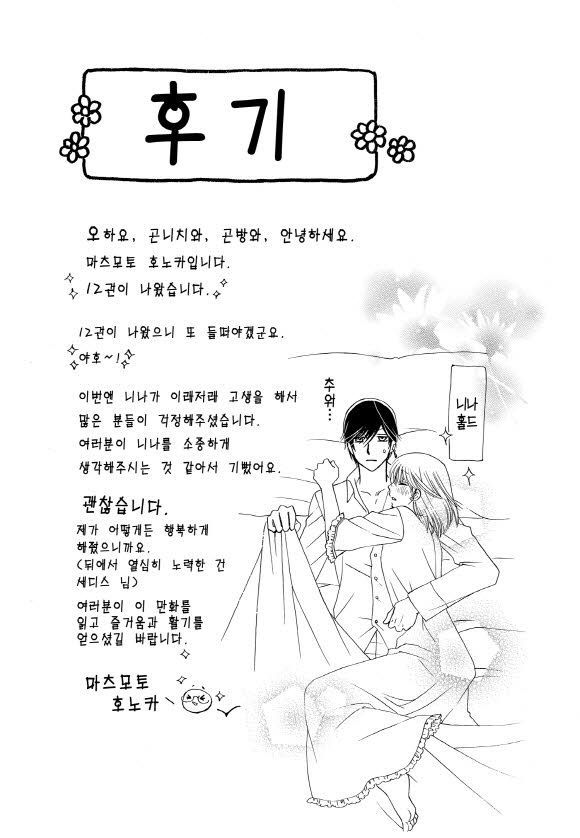 후기
오하요, 곤니치와, 곤방와, 안녕하세요.
마츠모토 호노카입니다.
12권이 나왔습니다.
12권이 나왔으니 또 들떠야겠군요.
야호~!
이번엔 니나가 이래저래 고생을 해서
많은 분들이 걱정해주셨습니다.
여러분이 니나를 소중하게
생각해주시는 것 같아서 기뻤어요.
괜찮습니다.
제가 어떻게든 행복하게
해줬으니까요.
(뒤에서 열심히 노력한 건
세디스 님)
여러분이 이 만화를
읽고 즐거움과 활기를
얻으셨길 바랍니다.
마츠모토
호노카
추워…
니나
홀드